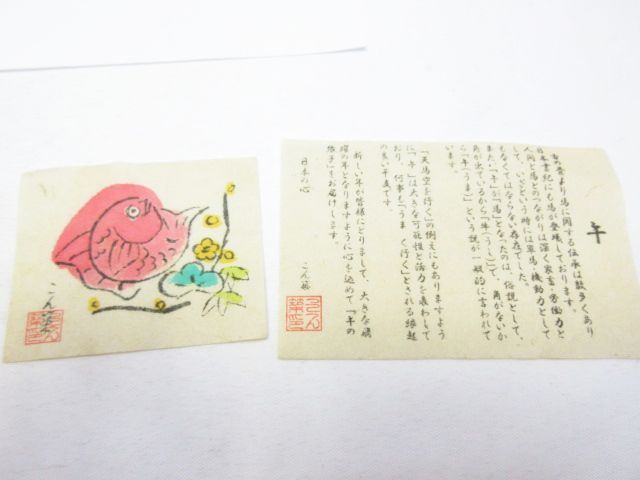 こん䒾
午
古の昔より馬に関する伝承は数多くあり
日本書紀にも馬が登場しております。
人間と馬とのつながりは深く家畜・労働力と
して、いざという時には軍馬・機動力として
もなくてはならない存在でした。
また、「午」が「馬」となったのは、俗説として、
角が出ているから「牛(うし)」で、角がないか
ら「午(うま)」という説が一般的に言われて
います。
「天馬空を行く」の例えにもありますよう
に、「午」は大きな可能性と活力を表わして
おり、何事も「うまく行く」とされる縁起
の良い干支です。
新しい年が皆様にとりまして、大きな飛
躍の年となりますように心を込めて「午の
張子」をお届けします。
日本の心